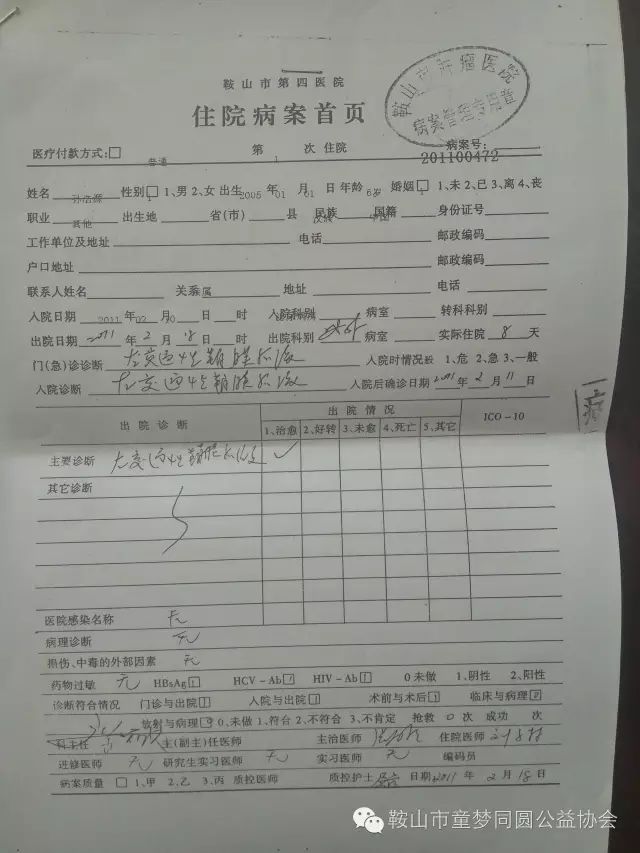 鞍山市第四医院
鞍山市肿瘤医院
病案管理专用章
住院病案首页
医疗付款方式:□ 普通 第 1 次 住院 病案号: 201100472
姓名 性别 1 1、男 2、女 出生 2005 年 01 月 01 日 年龄 6岁 婚姻 1 1、未 2、已 3、离 4、丧
职业 其他 出生地 省(市) 县 民族 汉族 国籍 中国 身份证号
工作单位及地址 电话 邮政编码
户口地址 邮政编码
联系人姓名 关系属 地址 电话
入院日期 2011 年 02 月 日 时 入院科别 病室 转科科别
出院日期 2011 年 2 月 18 日 时 出院科别 病室 实际住院 8 天
门(急)诊诊断 左交通性鞘膜积液 入院时情况 1、危 2、急 3、一般
入院诊断 左交通性鞘膜积液 入院后确诊日期 2011 年 2 月 11 日
出院诊断 出院情况 ICO-10
1、治愈 2、好转 3、未愈 4、死亡 5、其它
主要诊断 左交通性鞘膜积液 ✓
其它诊断
医院感染名称 无
病理诊断 无
损伤、中毒的外部因素 无
药物过敏 无 HBsAg 1 HCV-Ab HIV-Ab 0 未做 1、阴性 2、阳性
诊断符合情况 门诊与出院 1 入院与出院 术前与术后 1 临床与病理 0
放射与病理 0 0、未做 1、符合 2、不符合 3、不肯定 抢救 0 次 成功 次
科主任 主(副主)任医师 主治医师 住院医师
进修医师 无 研究生实习医师 无 实习医师 无 编码员
病案质量 □ 1、甲 2、乙 3、丙 质控医师 质控护士 日期 2011 年 2 月 18 日
鞍山市童梦同圆公益协会